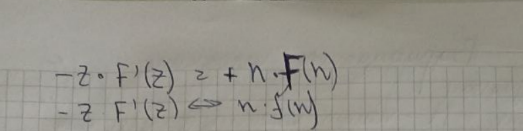 -z · F'(z) = + n · F(n)
-z F'(z) ⇔ n · f(n)